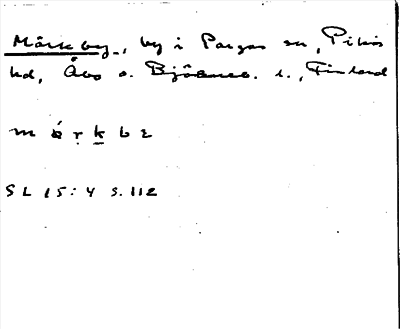 Märkby, by i Pargas sn, Pikis
hd, Åbo o. Björneb. l., Finland
m ä́ ṛ k̲ b ε
SL 15:4 s.112